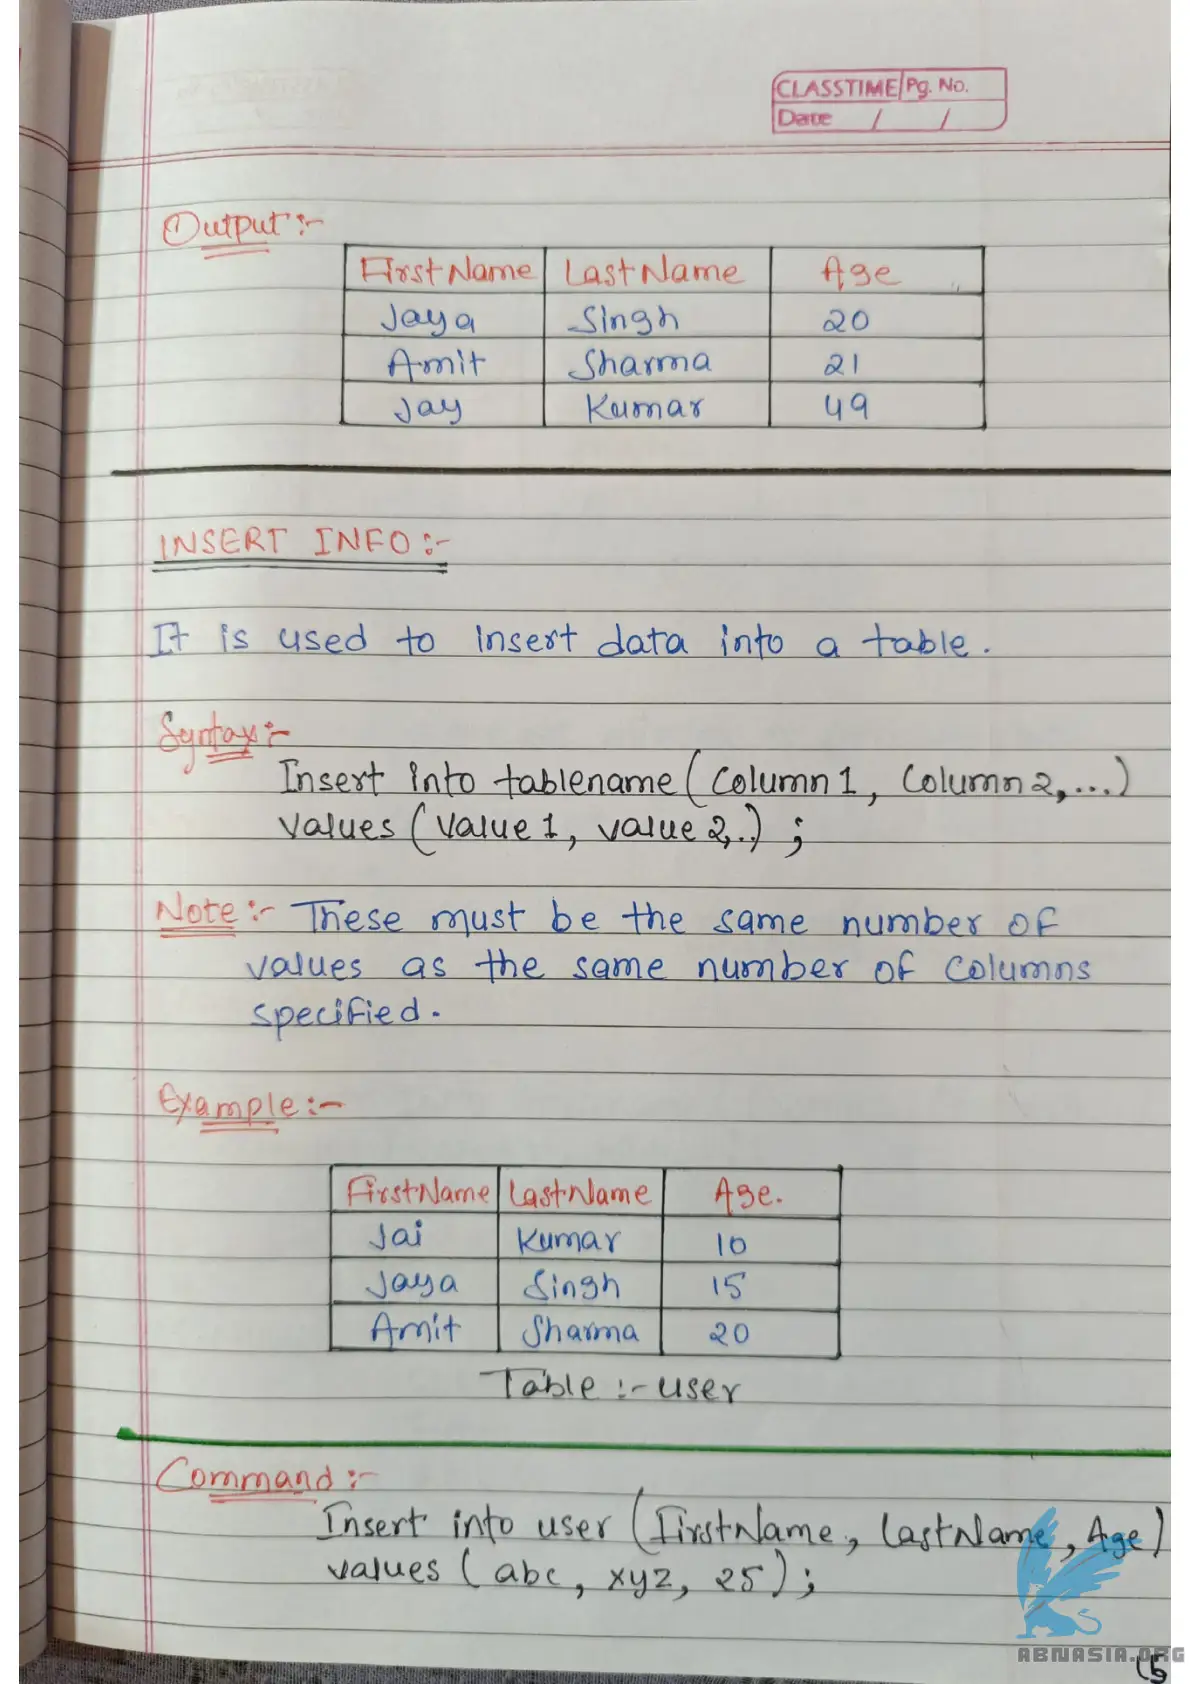 CLASSTIME Pg. No.
Date / /
Output :-
FirstName LastName Age
Jaya Singh 20
Amit Sharma 21
Jay Kumar 49
INSERT INFO :-
It is used to insert data into a table.
Syntax :-
Insert into tablename (Column 1, Column 2, ...)
values (value 1, value 2, ..) ;
Note :- These must be the same number of
values as the same number of columns
specified.
Example :-
FirstName LastName Age.
Jai Kumar 10
Jaya Singh 15
Amit Sharma 20
Table :- user
Command :-
Insert into user (FirstName, LastName, Age)
values (abc, xyz, 25) ;
ABNASIA.ORG